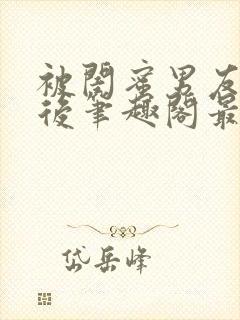 被閨蜜男友
後筆趣閣最
岱岳峰